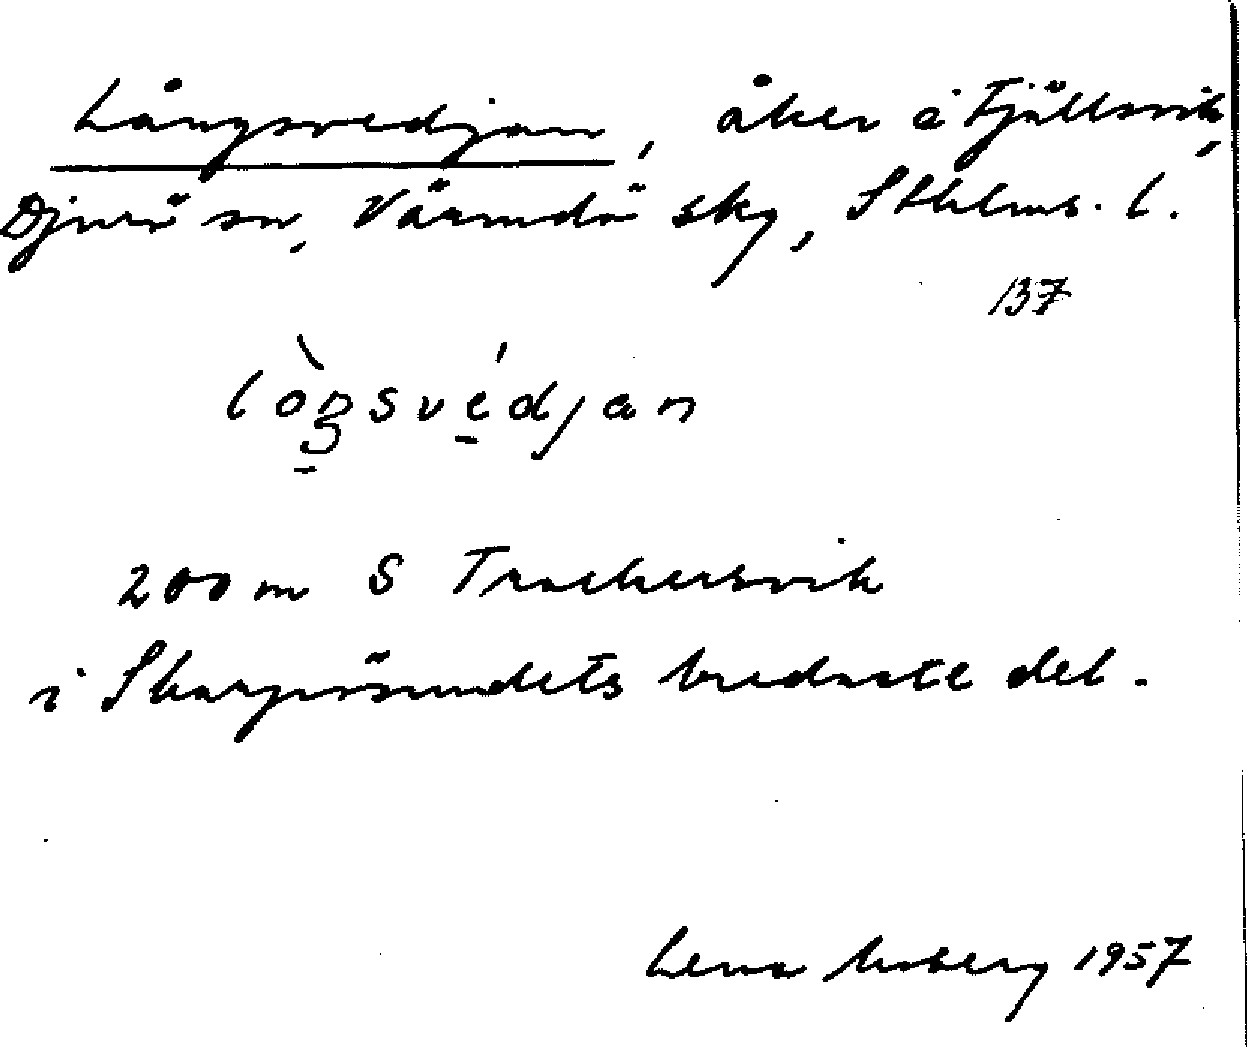 Långsvedjan, åker å Fjällsvik,
Djurö sn, Värmdö skg, Sthlms. l.
137
lògsvédjan
200 m S Trackersvik
i Skarpösundets bredaste del.
Lena Moberg 1957